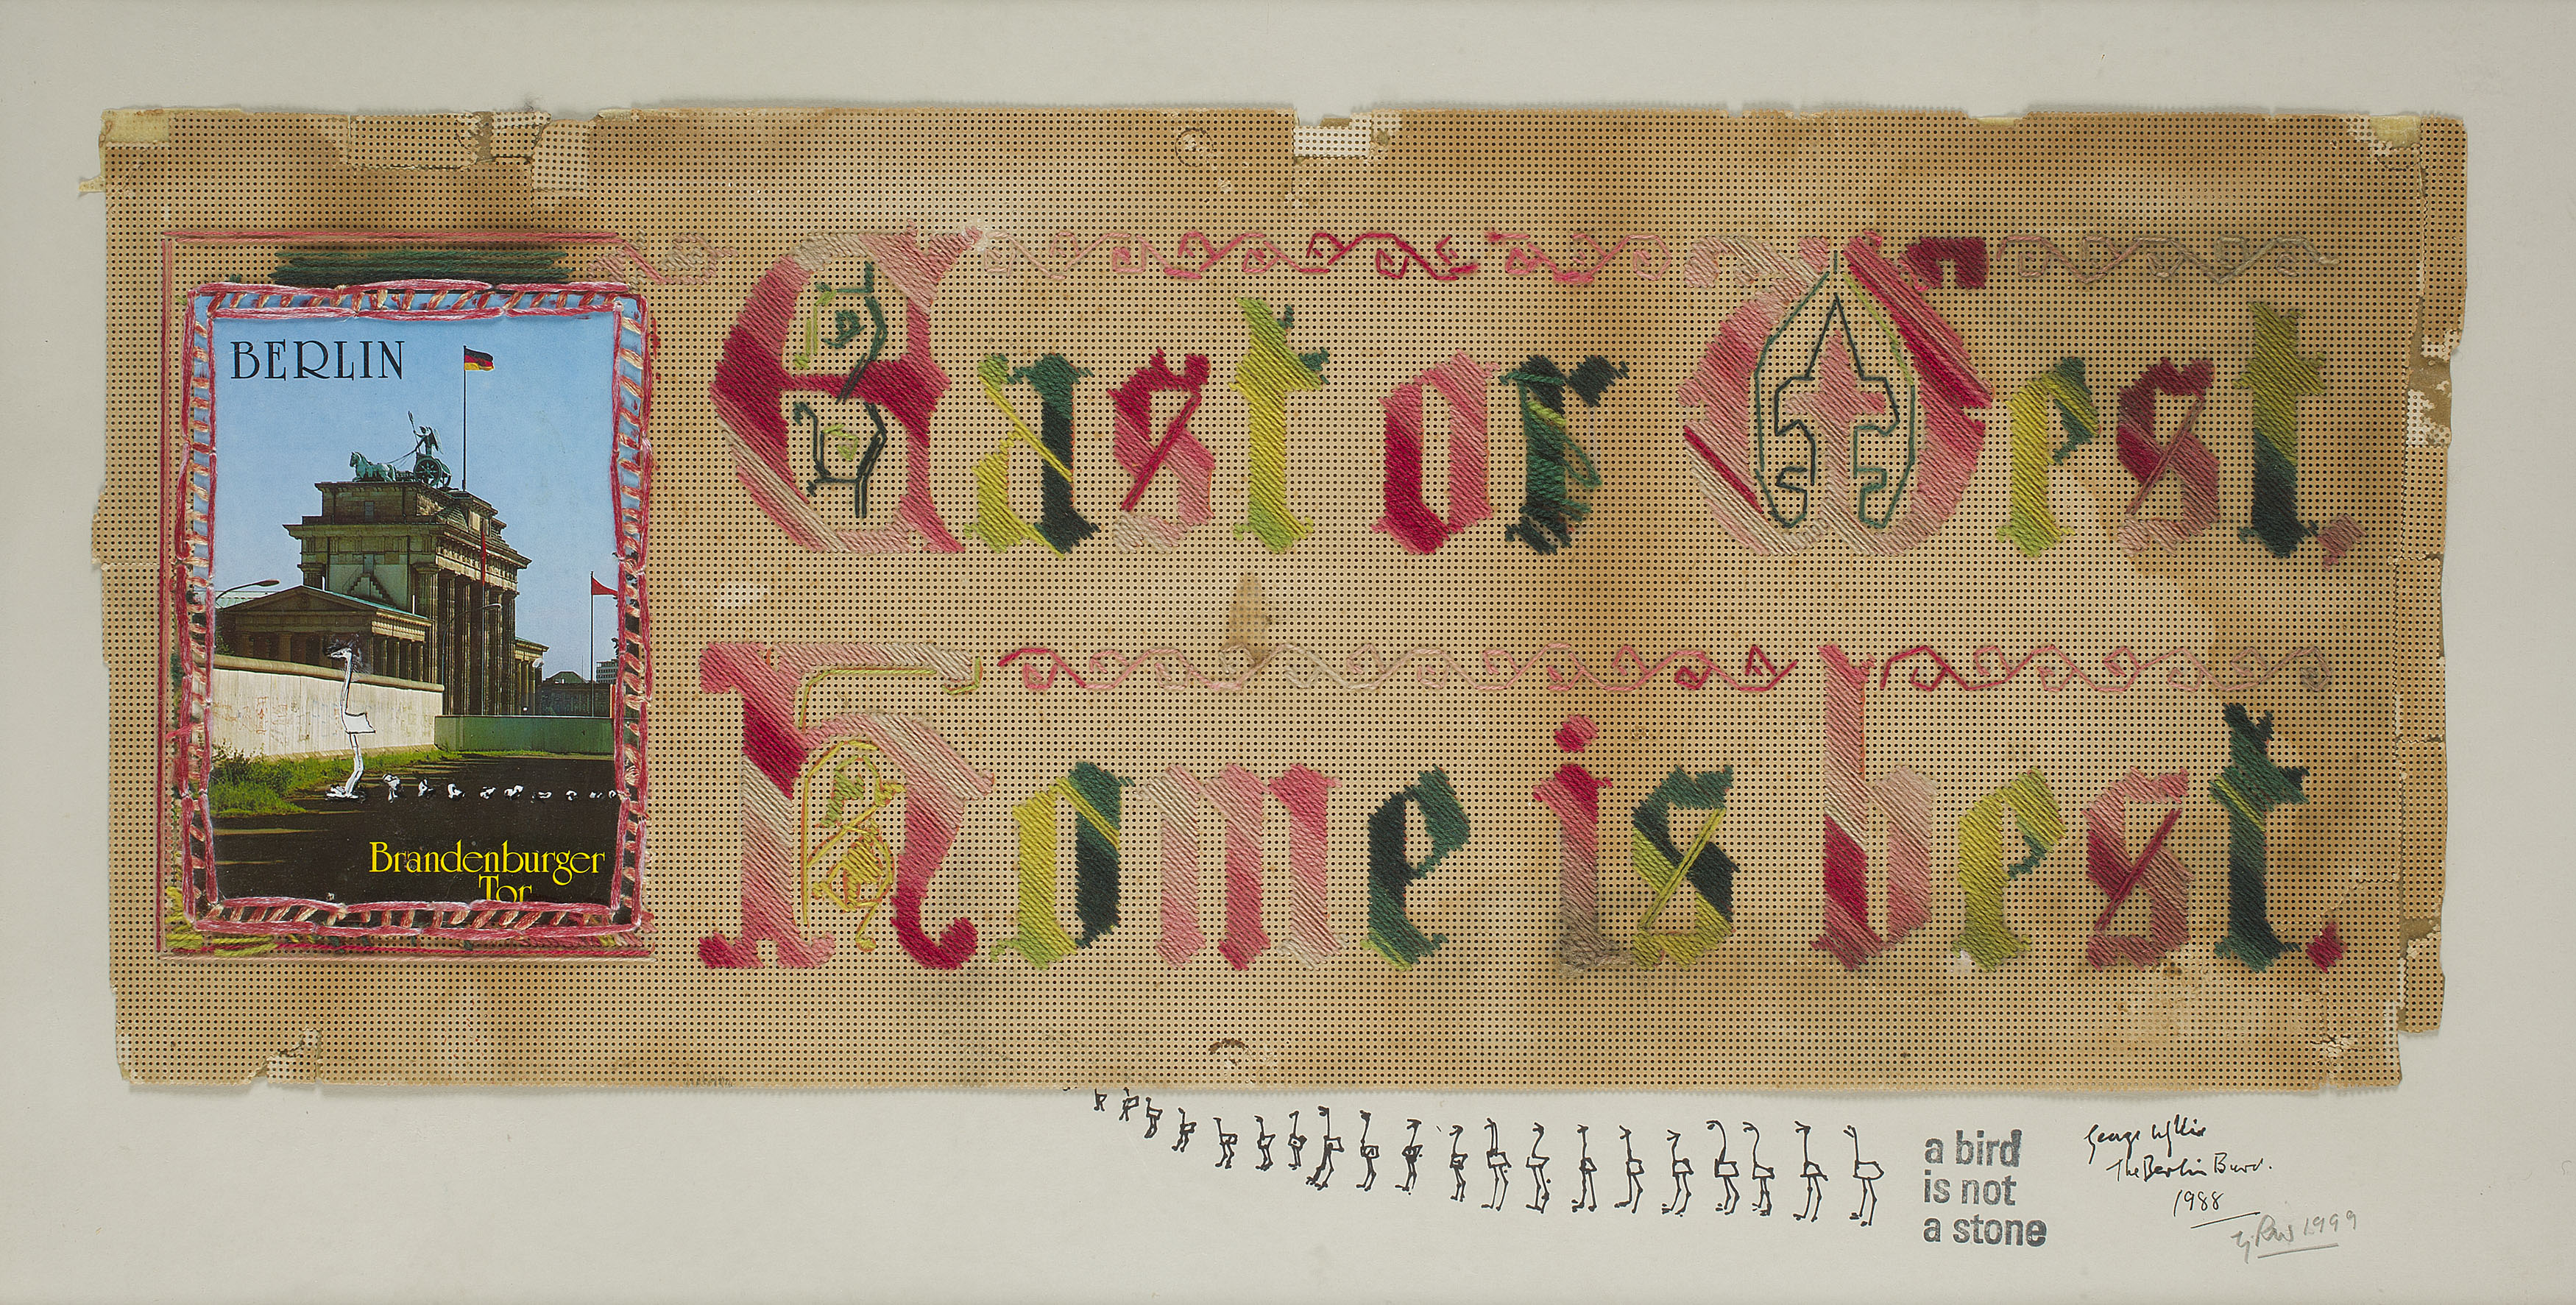 BERLIN
Brandenburger
Tor
East or West.
Home is best.
a bird
is not
a stone
George Wyllie
The Berlin Burd.
1988
1999